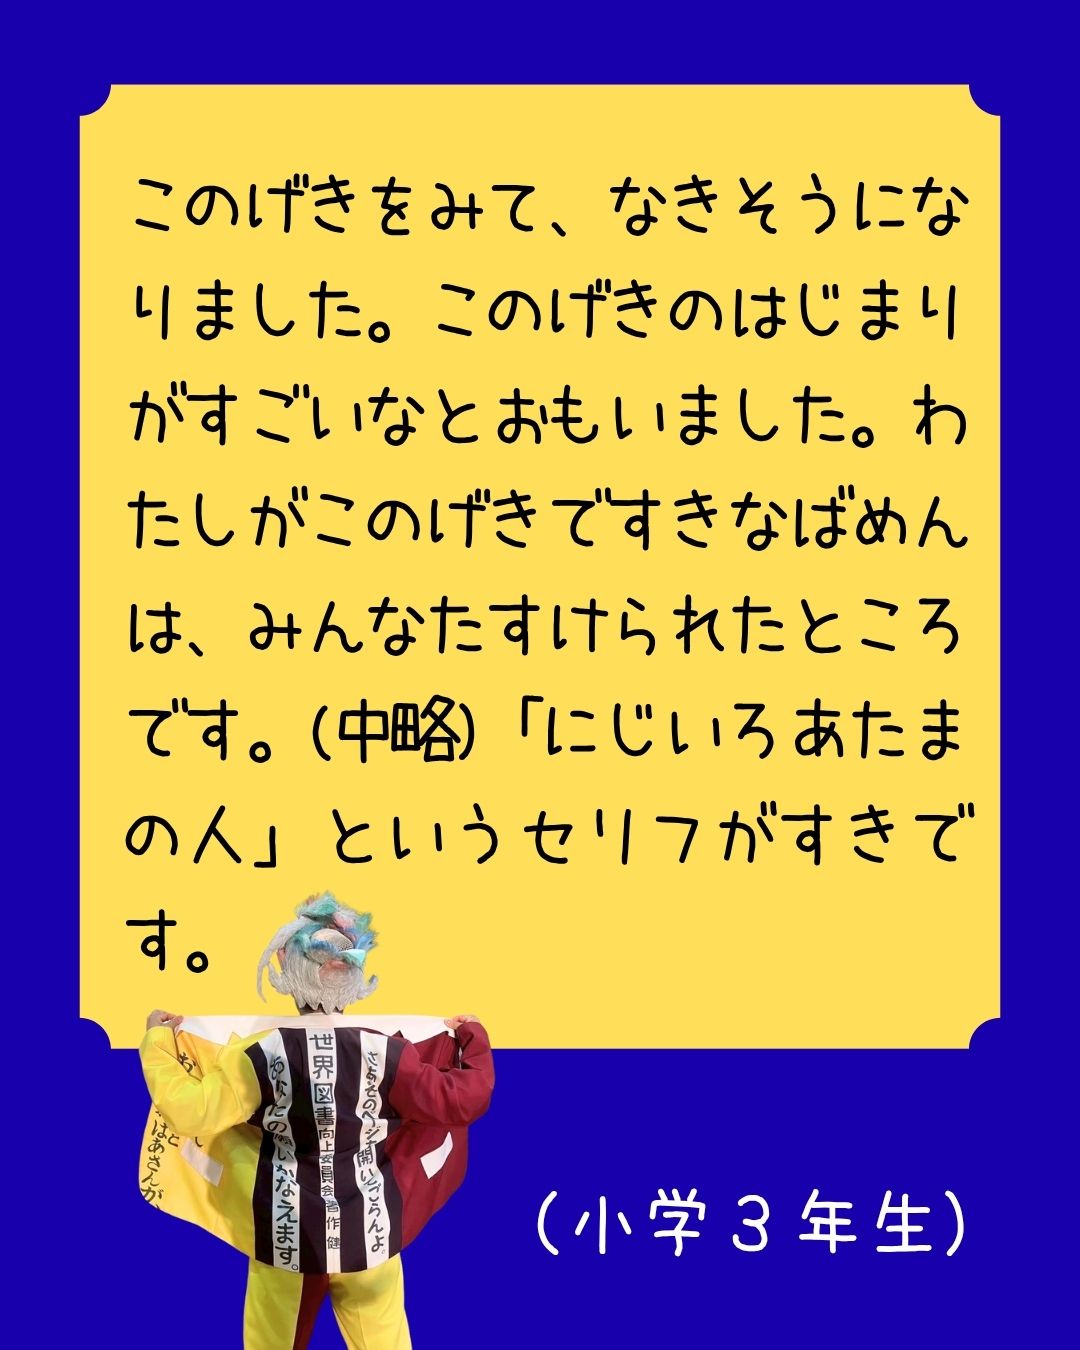 このげきをみて、なきそうにな
りました。このげきのはじまり
がすごいなとおもいました。わ
たしがこのげきですきなばめん
は、みんなたすけられたところ
です。(中略)「にじいろあたま
の人」というセリフがすきで
す。
さあそのページを開いてごらんよ。
世界図書向上委員会著作健
あなたの願いかなえます。
はあさんが、
(小学３年生)